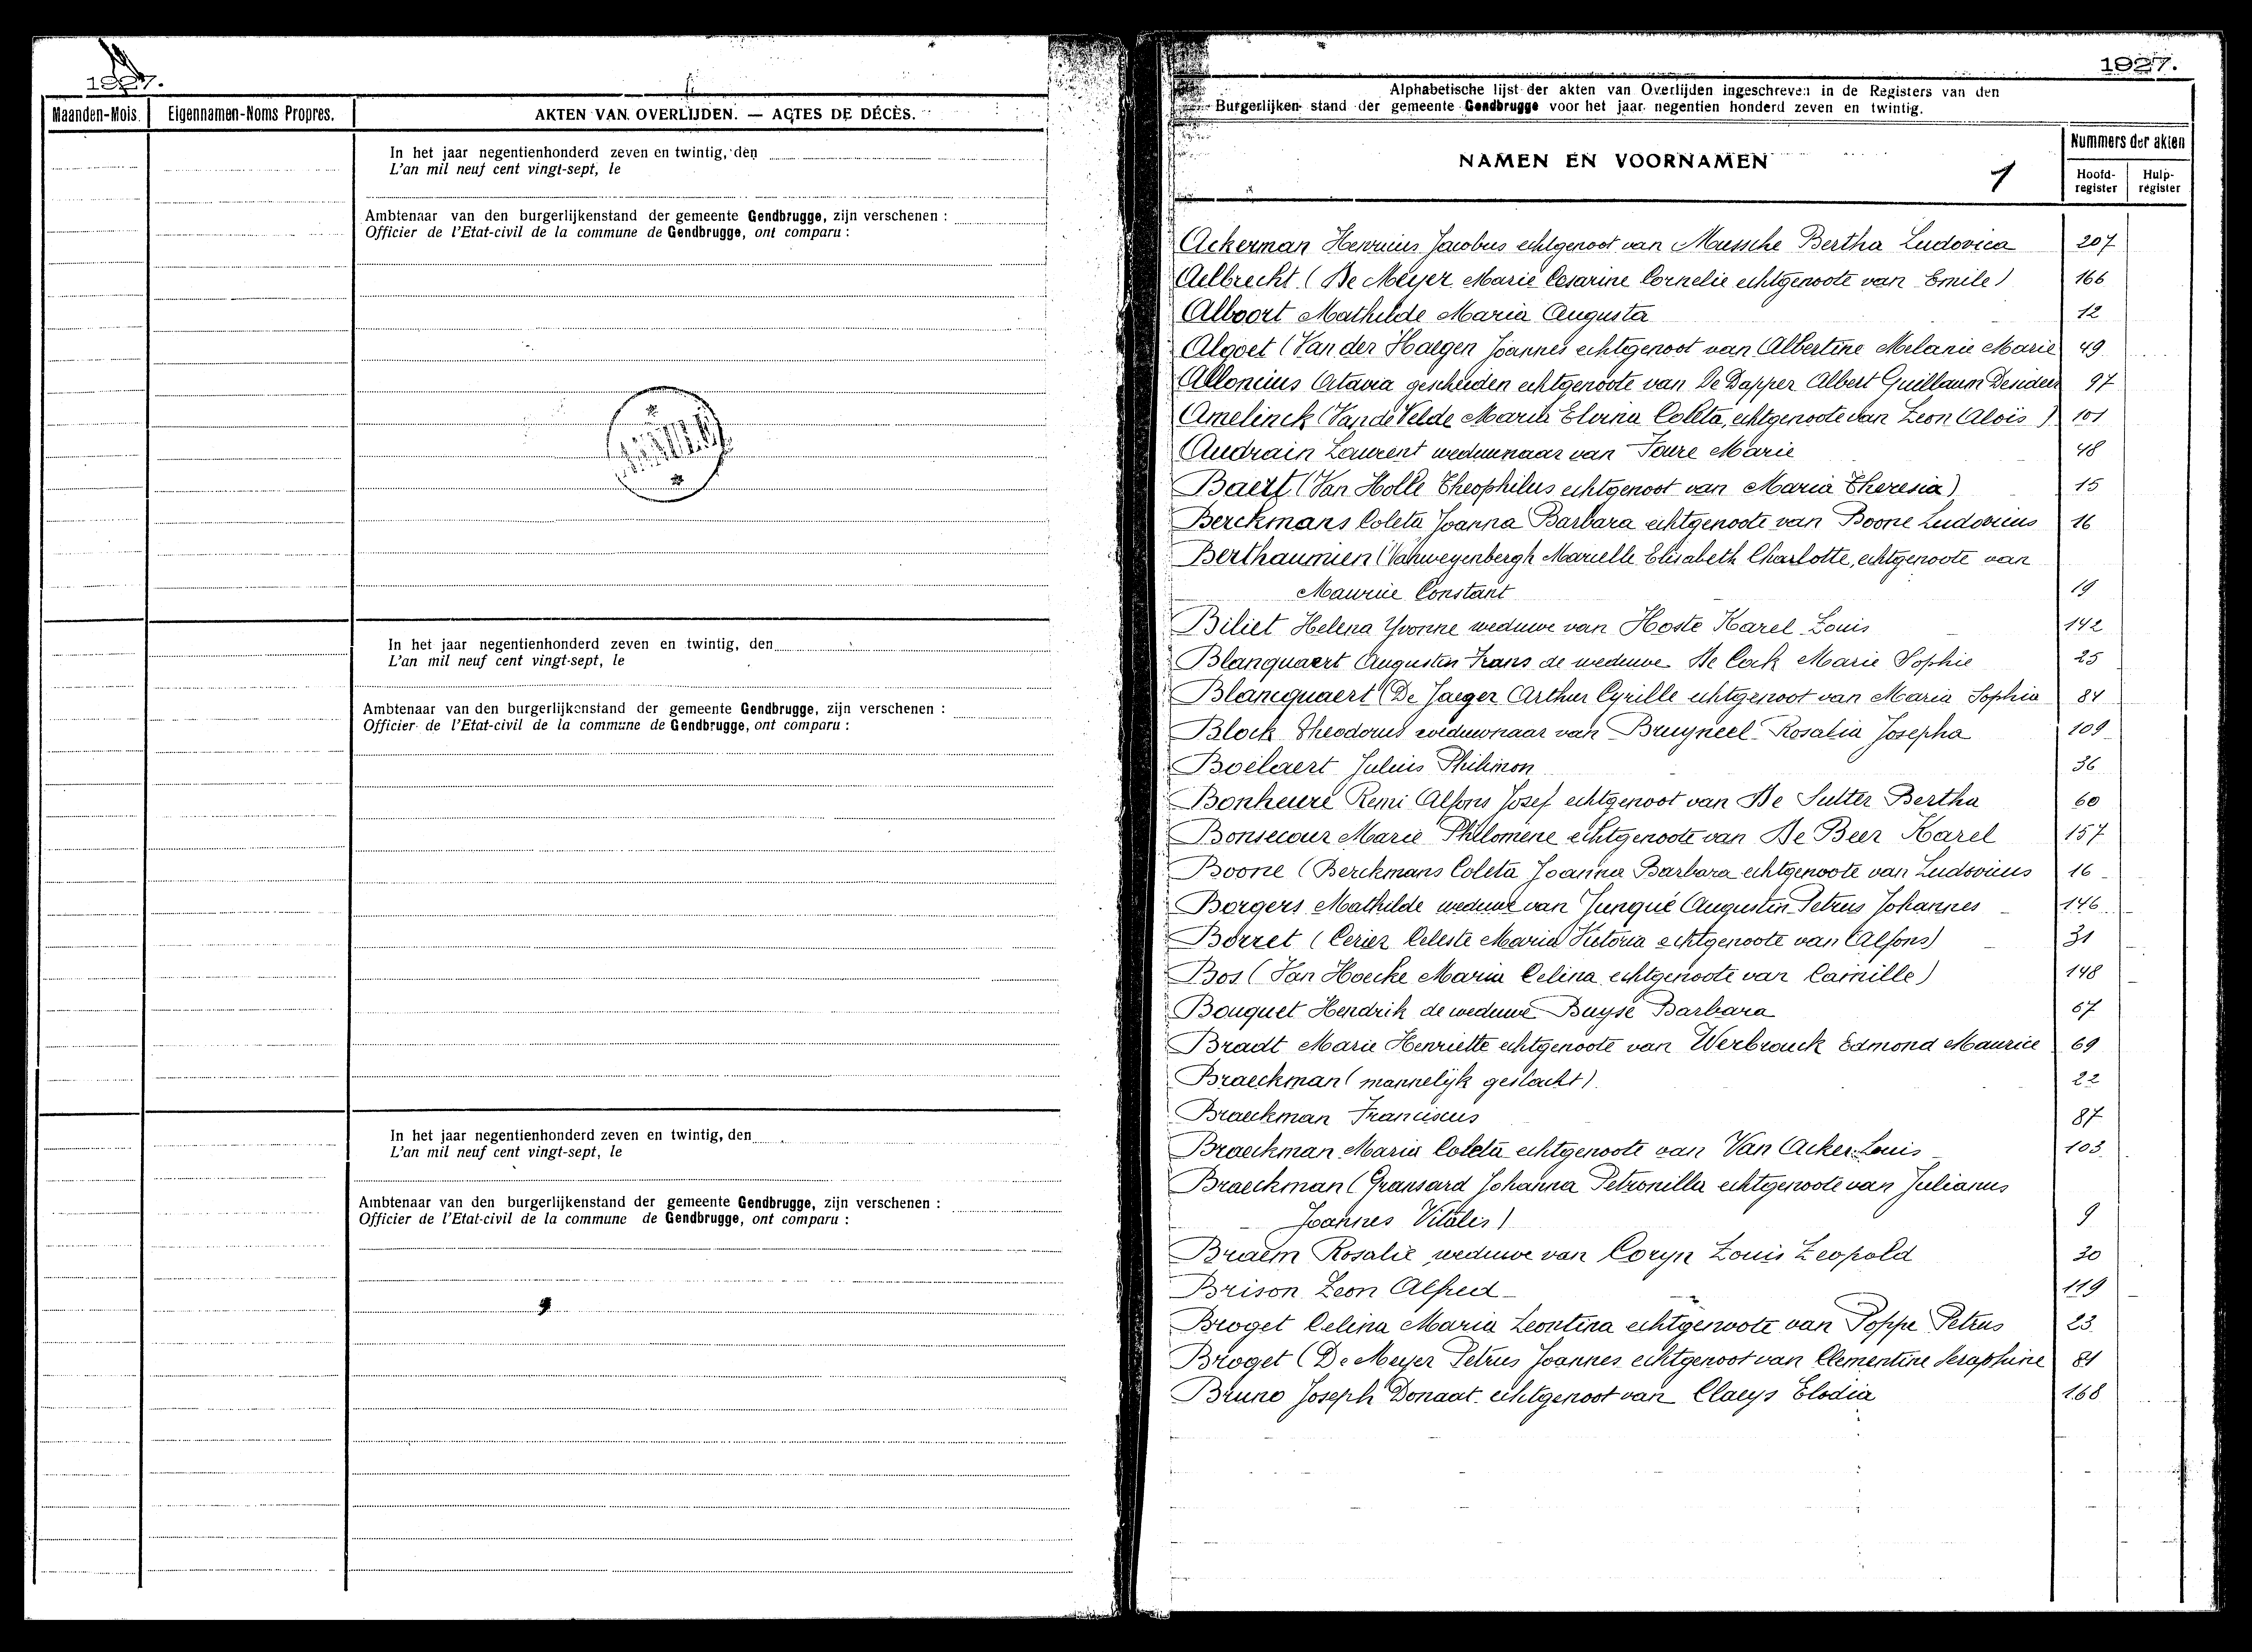 1927.
Maanden-Mois.
Eigennamen-Noms Propres.
AKTEN VAN OVERLIJDEN. — ACTES DE DÉCÈS.
In het jaar negentienhonderd zeven en twintig, den
L'an mil neuf cent vingt-sept, le
Ambtenaar van den burgerlijkenstand der gemeente Gendbrugge, zijn verschenen :
Officier de l'Etat-civil de la commune de Gendbrugge, ont comparu :
In het jaar negentienhonderd zeven en twintig, den
L'an mil neuf cent vingt-sept, le
Ambtenaar van den burgerlijkenstand der gemeente Gendbrugge, zijn verschenen :
Officier de l'Etat-civil de la commune de Gendbrugge, ont comparu :
In het jaar negentienhonderd zeven en twintig, den
L'an mil neuf cent vingt-sept, le
Ambtenaar van den burgerlijkenstand der gemeente Gendbrugge, zijn verschenen :
Officier de l'Etat-civil de la commune de Gendbrugge, ont comparu :
1927.
Alphabetische lijst der akten van Overlijden ingeschreven in de Registers van den
Burgerlijken stand der gemeente Gendbrugge voor het jaar negentien honderd zeven en twintig.
NAMEN EN VOORNAMEN 1
Nummers der akten
Hoofd-register
Hulp-register
Ackerman Henricus Jacobus echtgenoot van Mussche Bertha Ludovica 207
Aelbrecht (De Meyer Marie Cesarine Cornelie echtgenoote van Emile) 166
Alboort Mathilde Maria Augusta 12
Algoet (Van der Haegen Joannes echtgenoot van Albertine Melanie Marie 49
Alloncius Octavia gescheiden echtgenoote van De Dapper Albert Guillaum 97
Amelinck (Van de Velde Marie Elvina Coleta, echtgenoote van Leon Aloïs) 101
Audrain Laurent weduwnaar van Marie 48
Baert (Van Holle Theophilus echtgenoot van Maria Theresia) 15
Berckmans Coleta Joanna Barbara echtgenoote van Boone Ludovicus 16
Berthaumien (Vanweyenbergh Marielle Elisabeth Charlotte, echtgenoote van
Maurice Constant 19
Biliet Helena Yvonne weduwe van Hoste Karel Louis 142
Blanquaert Augustin Frans de weduwe De Cock Marie Sophie 25
Blancquaert (De Jaeger Arthur Cyrille echtgenoot van Maria Sophia 84
Block Theodorus weduwnaar van Bruyneel Rosalia Josepha 109
Boelaert Julius Philimon 36
Bonheure Remi Alfons Josef echtgenoot van De Sutter Bertha 60
Bonsecour Marie Philomene echtgenoote van De Beer Karel 157
Boone (Berckmans Coleta Joanna Barbara echtgenoote van Ludovicus 16
Borgers Mathilde weduwe van Junqué Augustin Petrus Johannes 146
Borret (Cerier Celeste Maria Victoria echtgenoote van Alfons) 31
Bos (Van Hoecke Maria Celina echtgenoote van Camille) 148
Bouquet Hendrik de weduwe Buyse Barbara 67
Bradt Marie Henriette echtgenoote van Werbrouck Edmond Maurice 69
Braeckman (mannelijk geslacht) 22
Braeckman Franciscus 87
Braeckman Maria Coleta echtgenoote van Van Acker Louis 103
Braeckman (Gransard Johanna Petronilla echtgenoote van Julianus
Joannes Vitalis) 9
Braem Rosalie weduwe van Coryn Louis Leopold 30
Brison Leon Alfred 119
Broget Celina Maria Leontina echtgenoote van Poppe Petrus 23
Broget (De Meyer Petrus Joannes echtgenoot van Clementine Seraphine 81
Bruno Joseph Donaat echtgenoot van Claeys Elodia 168